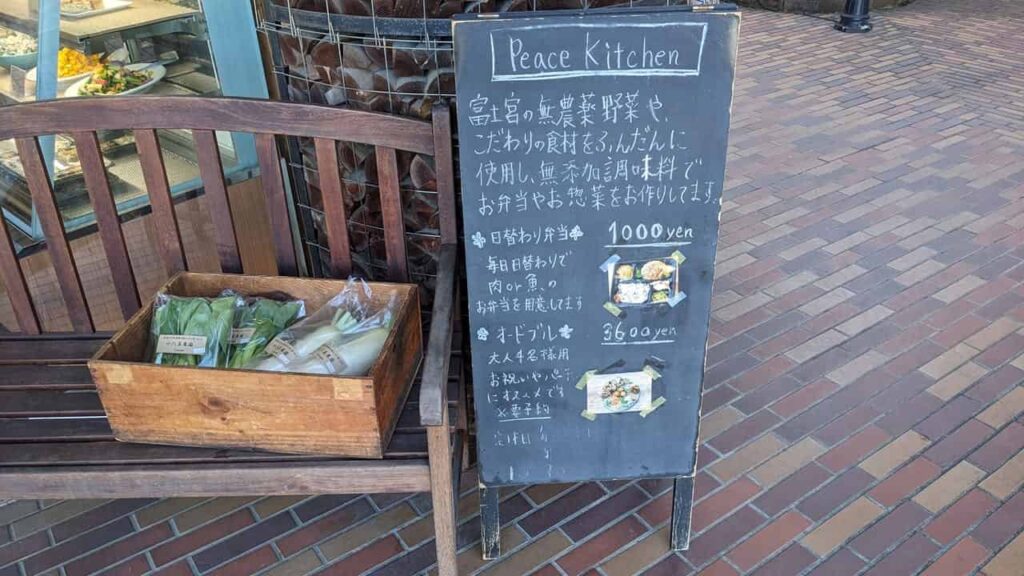 Peace Kitchen
富士宮の無農薬野菜や、
こだわりの食材をふんだんに
使用し、無添加調味料で
お弁当やお惣菜をお作りしてます。
日替わり弁当
1000yen
毎日日替わりで
肉or魚の
お弁当を用意します
オードブル
3600yen
大人4名様用
お祝いや
にオススメです
※要予約
定休日